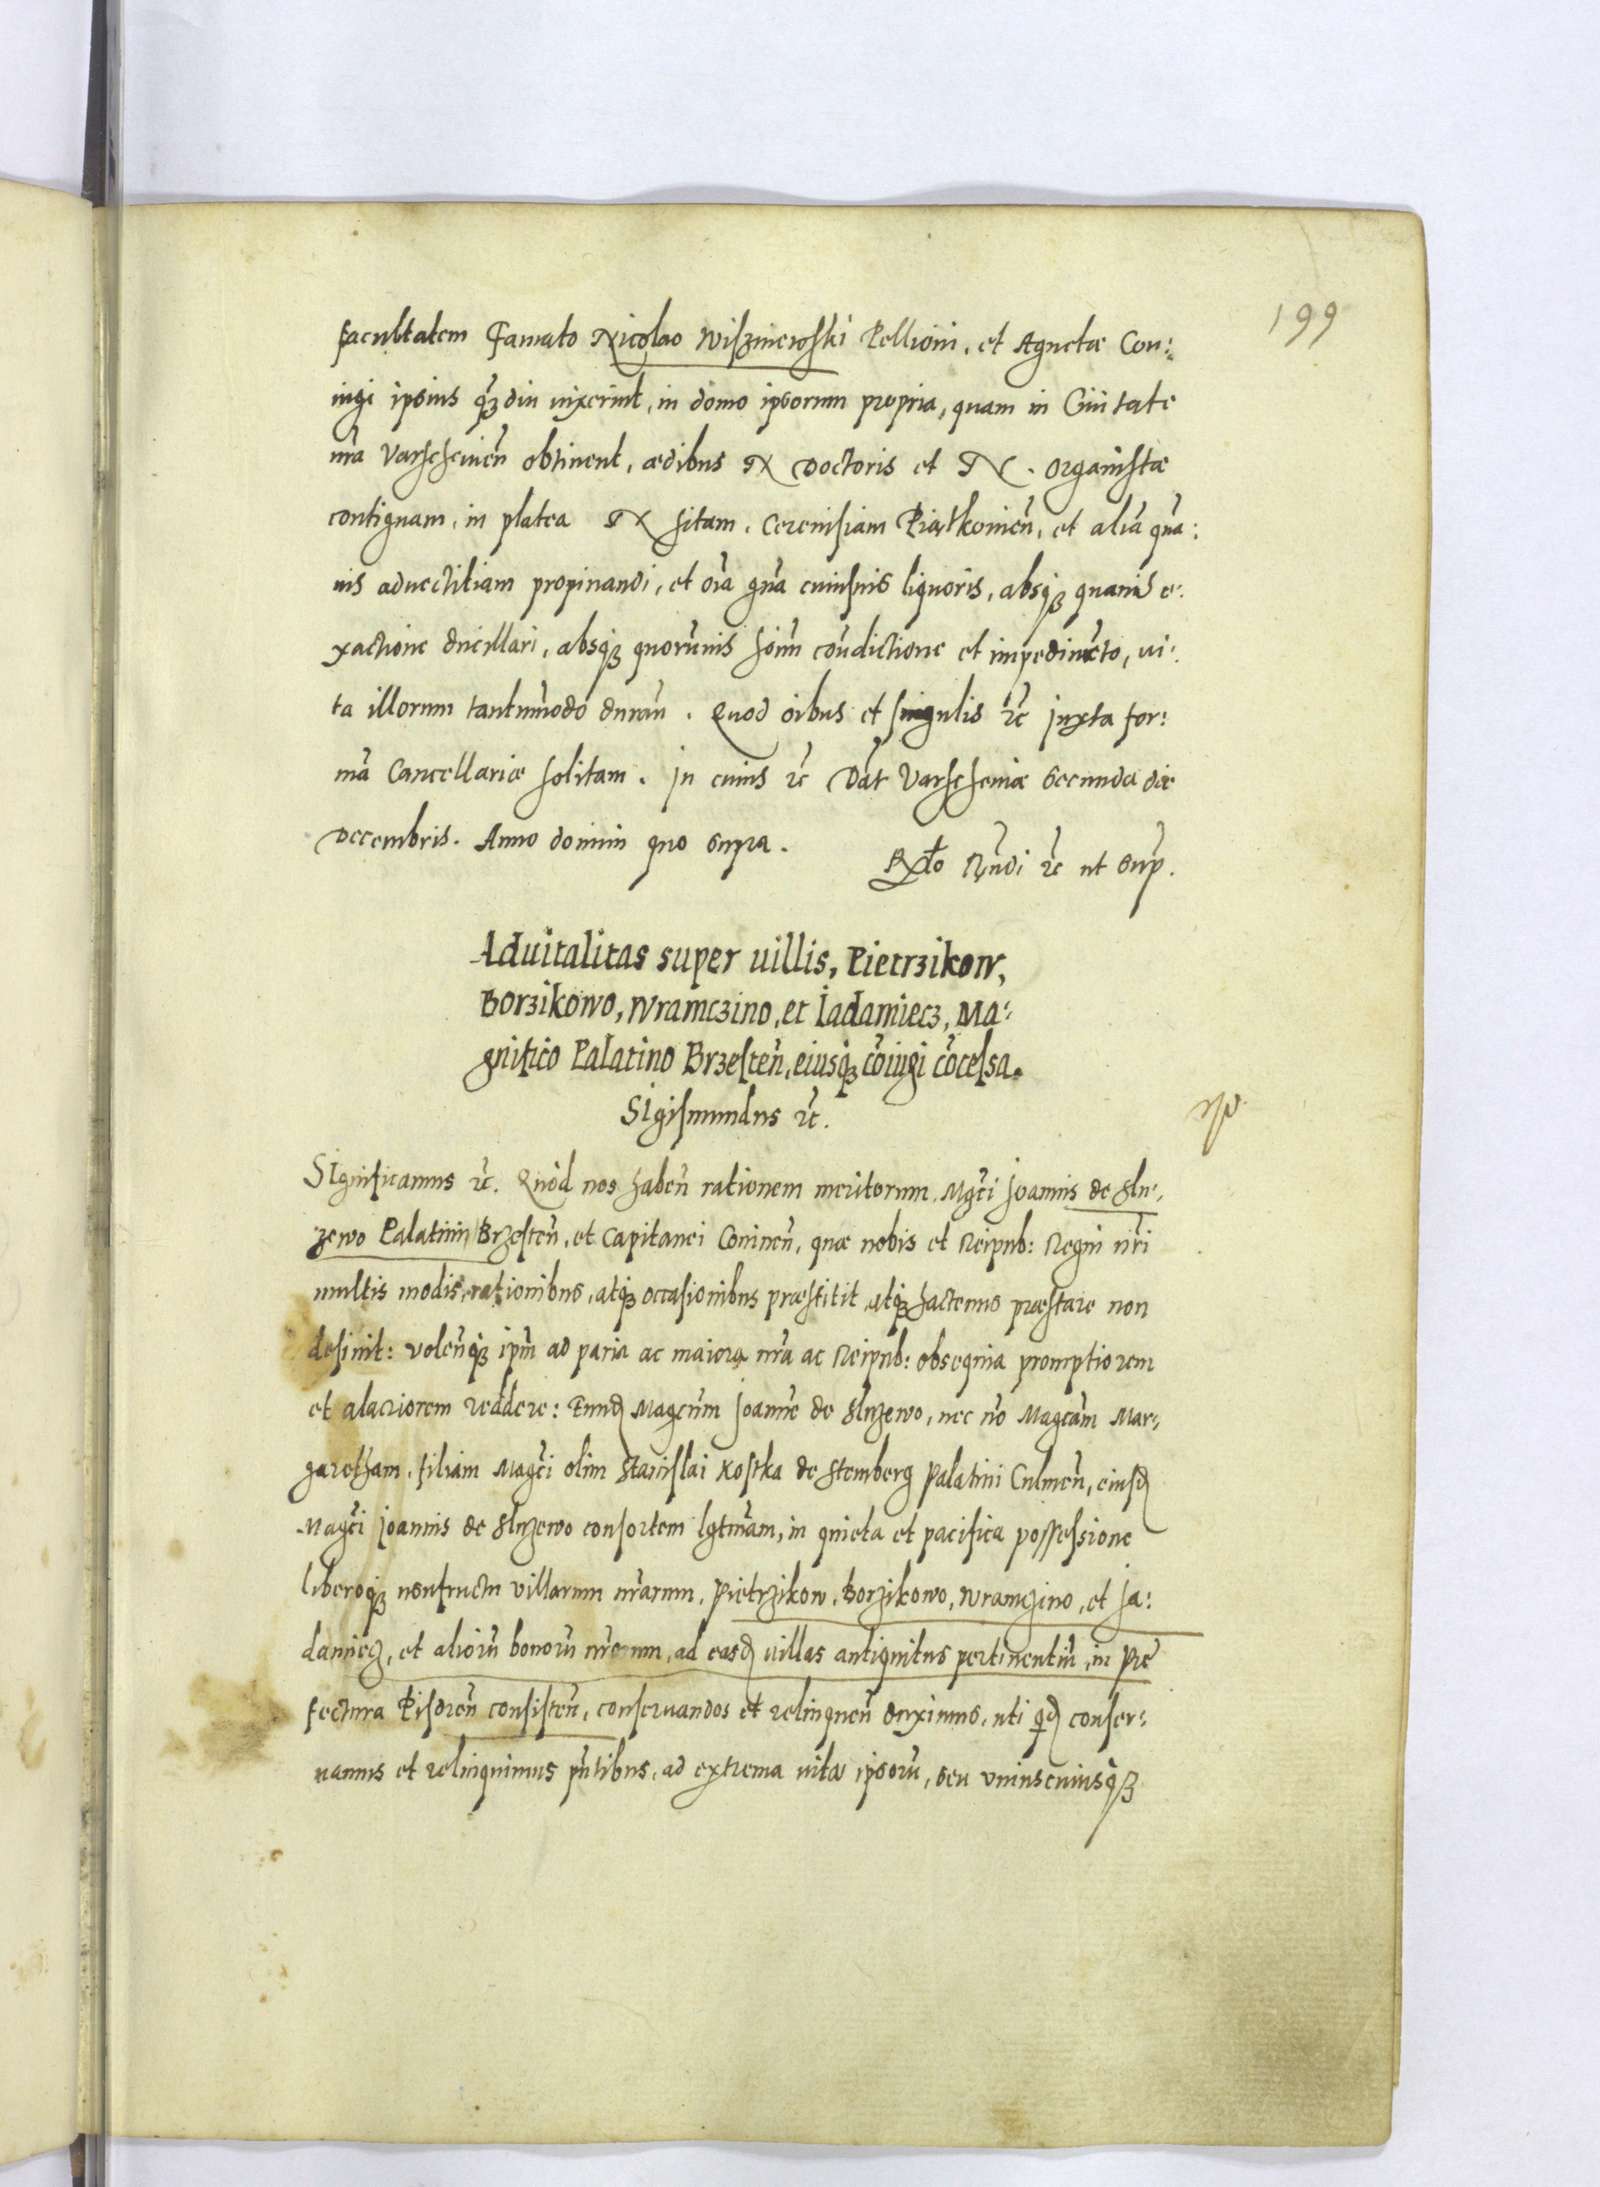 199
facultatem Famato Nicolao Wiszniewski Pellioni, et Agnetæ Con:
iugi ipsius q̃ꝫdiu uixerint, in domo ipsorum propria, quam in Ciuitate
nr̃a Varscheuien̄ obtinent, ædibus N Doctoris et N. Organistæ
contiguam, in platea N sitam. Cereuisiam Piątkouien̄, et aliā quā:
uis aduectitiam propinandi, et oīa gn̄a cuiusuis liquoris, absqꝫ quauis e:
xactione ducillari, absqꝫ quorūuis hoīm cōudictione et impedimēto, ui:
ta illorum tantūmodo duran̄. Quod oībus et singulis ꝛc̄ juxta for:
mā Cancellariæ solitam. In cuius ꝛc Dat̄ Varscheuiæ Secunda die
Decembris. Anno domini quo supra.
Rx̄to Rn̄di ꝛc̄ ut sup̄.
Aduitalitas super uillis, Pietrzikow,
Borzikowo, Wramczino, et Iadamiecz, Ma:
gnifico Palatino Brzesten̄, eiusqꝫ cōiugi cōcessa.
Sigismundus ꝛc̄.
Significamus ꝛc̄. Quòd nos haben̄ rationem meritorum Mgc̄i Joannis de Slu:
zewo Palatini Brzesten̄, et Capitanei Coninen̄, quæ nobis et Reipub: Regni nr̄i
multis modis, rationibus, atqꝫ occasionibus præstitit, atqꝫ hactenus præstare non
desinit: volen̄qꝫ ipm̄ ad paria ac maiora nr̄a ac Reipub: obsequia promptiorem
et alacriorem reddere: Eundē Magcūm Joannē de Sluzewo, nec nō Magcām Mar:
garetham, filiam Magc̄i olim Stanislai Kostka de Stemberg Palatini Culmen̄, eiusdē
Magc̄i Joannis de Sluzewo consortem lgtm̄am, in quieta et pacifica possessione
liberoqꝫ usufructu villarum nr̄arum, Pietrzikow, Borzikowo, Wramczino, et Ja:
damiecz, et aliorū bonorū nr̄orum, ad easdē uillas antiquitus pertinentiū, in Præ
fectura Pisdren̄ consisten̄, conseruandos et relinquen̄ duximus, uti qdē conser:
uamus et relinquimus pn̄tibus, ad extrema uitæ ipsorū, seu vniuscuiusqꝫ